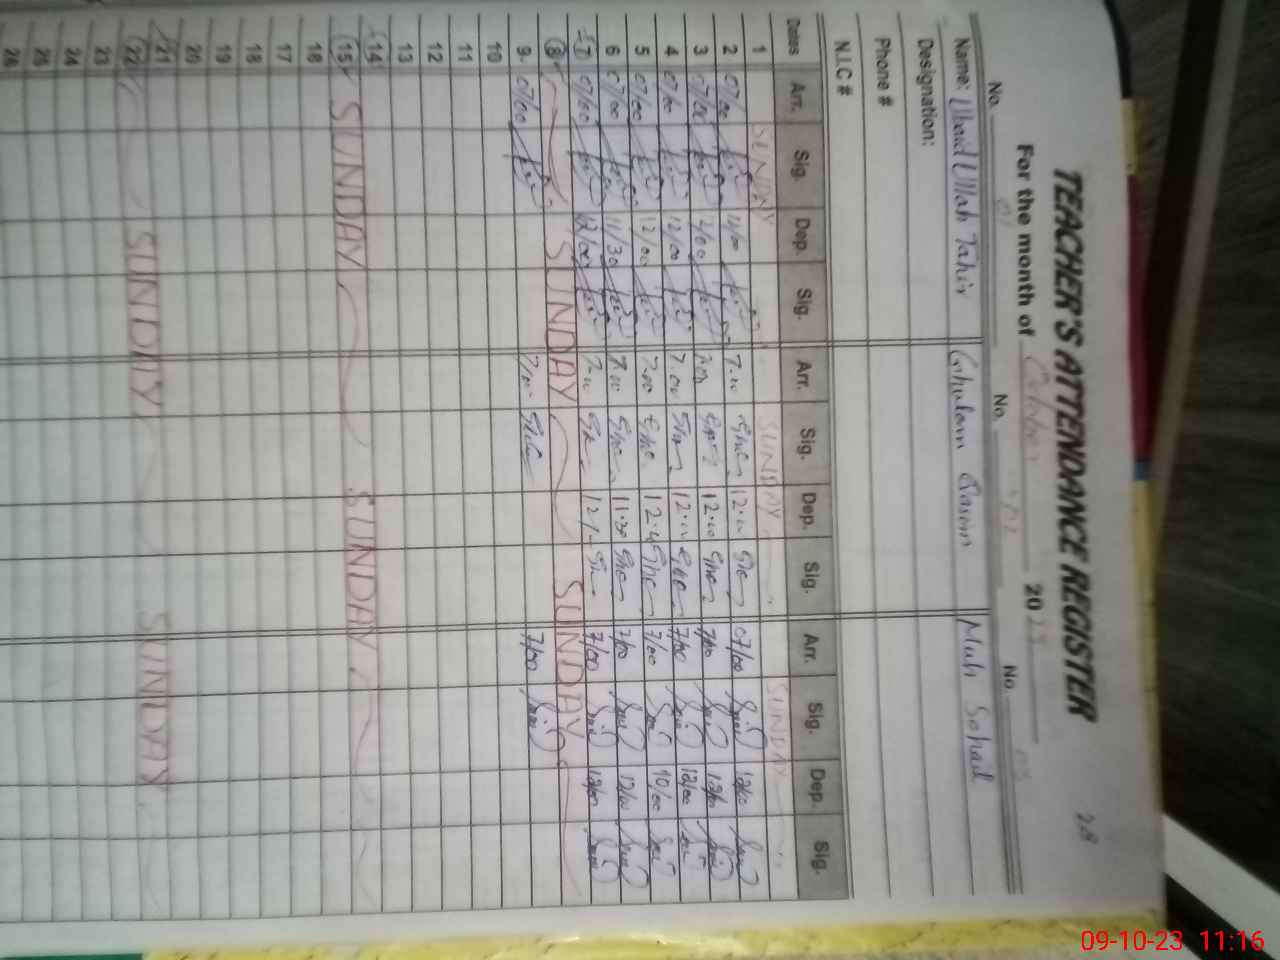 28
TEACHER'S ATTENDANCE REGISTER
For the month of October 2023
No. 01 No. 02 No. 03
Name: Ubaid Ullah Tahir Ghulam Qasim Muh Sohail
Designation:
Phone #
N.I.C #
Dates Arr. Sig. Dep. Sig. Arr. Sig. Dep. Sig. Arr. Sig. Dep. Sig.
1 SUNDAY SUNDAY SUNDAY
2 07/00 12/00 7.00 12.00 07/00 12/00
3 07/00 12/00 7.00 12.00 7/00 12/00
4 07/00 12/00 7.00 12.00 7/00 12/00
5 07/00 12/00 7.00 12.00 7/00 10/00
6 07/00 11/30 7.00 11.30 7/00 12/00
7 07/00 12/00 7.00 12/ 7/00 12/00
8 SUNDAY SUNDAY
9 07/00 7/00 7/00
10
11
12
13
14
15 SUNDAY SUNDAY
16
17
18
19
20
21
22 SUNDAY SUNDAY
23
24
25
26
09-10-23 11:16